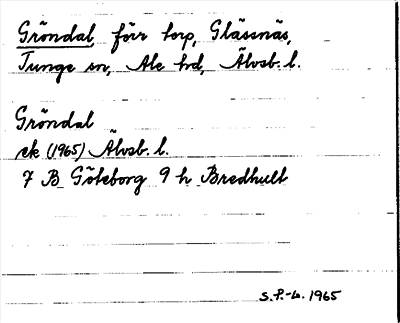 Gröndal, förr torp, Glässnäs,
Tunge sn, Ale hd, Älvsb. l.
Gröndal
ek (1965) Älvsb. l.
7 B Göteborg 9 h Bredhult
S.F.-L. 1965